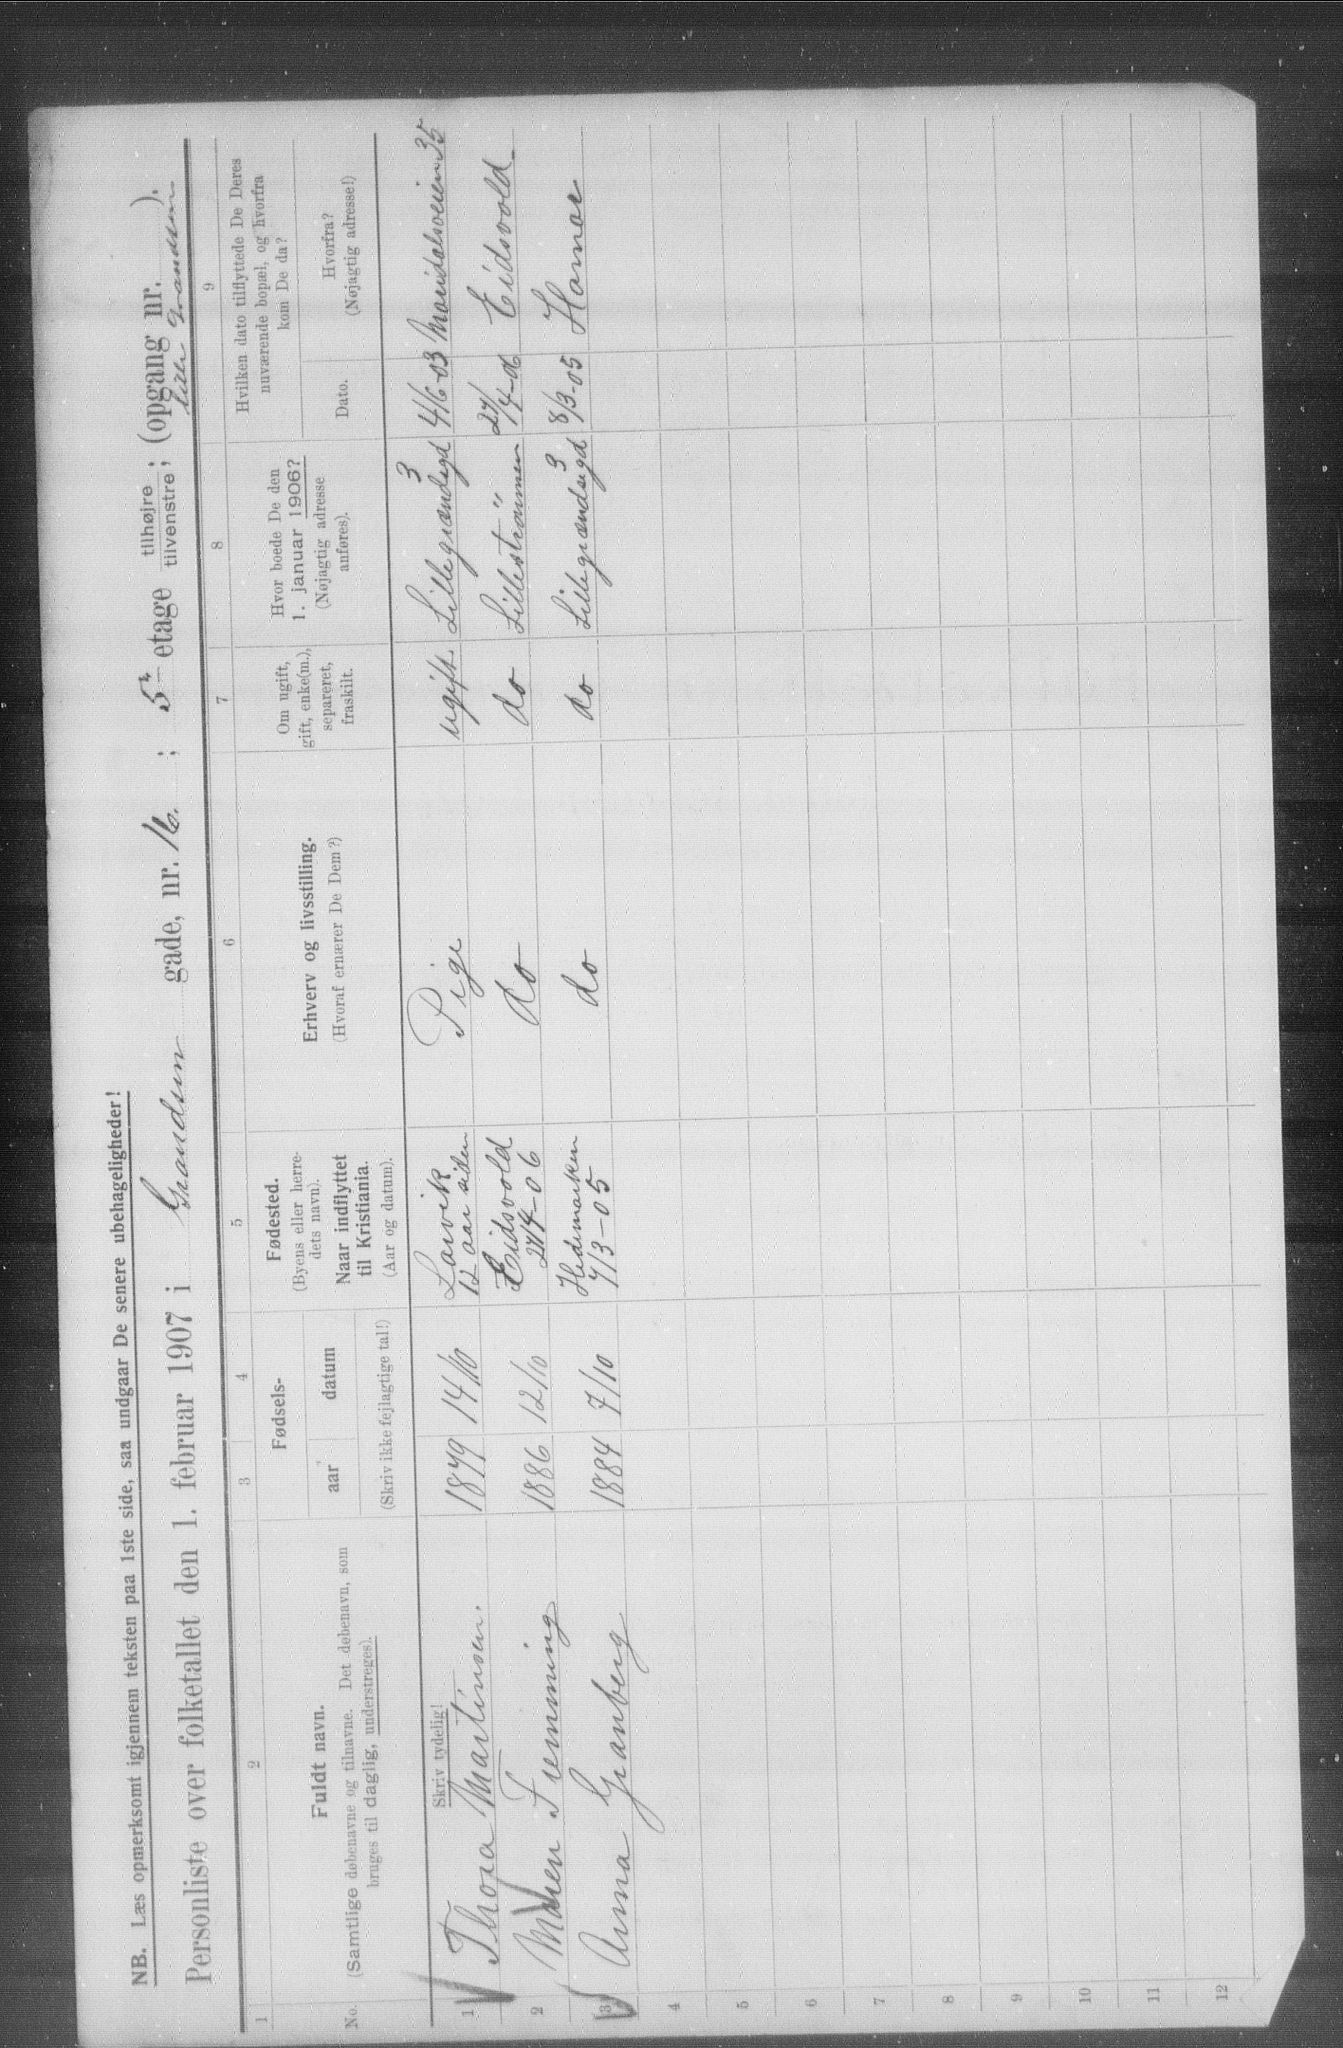 NB. Læs opmerksomt igjennem teksten paa 1ste side, saa undgaar De senere ubehageligheder!
Personliste over folketallet den 1. februar 1907 i Grændsen gade, nr. 16. ; 5 etage tilhøjre; tilvenstre; (opgang nr. ).
1 2 3 4 5 6 7 8 9
No.
Fuldt navn.
(Samtlige døbenavne og tilnavne. Det døbenavn, som
bruges til daglig, understreges).
Fødsels-
aar datum
(Skriv ikke fejlagtige tal!)
Fødested.
(Byens eller herre-
dets navn).
Naar indflyttet
til Kristiania.
(Aar og datum).
Erhverv og livsstilling.
(Hvoraf ernærer De Dem?)
Om ugift,
gift, enke(m.),
separeret,
fraskilt.
Hvor boede De den
1. januar 1906?
(Nøjagtig adresse
anføres).
Hvilken dato tilflyttede De Deres
nuværende bopæl, og hvorfra
kom De da?
Dato.
Hvorfra?
(Nøjagtig adresse!)
Skriv tydelig!
1 Thora Martinsen. 1879 14/10 Larvik 12 aar siden Pige ugift. Lillegrændsgd 3 4/6-03 Maridalsveien 35
2 Maren Flemming 1886 12/10 Eidsvold 27/4-06 do do Lillestrømmen 27/4-06 Eidsvold
3 Anna Granberg 1884 7/10 Hedemarken 7/3-05 do do Lillegrændsgd 3 8/3-05 Hamar
4
5
6
7
8
9
10
11
12